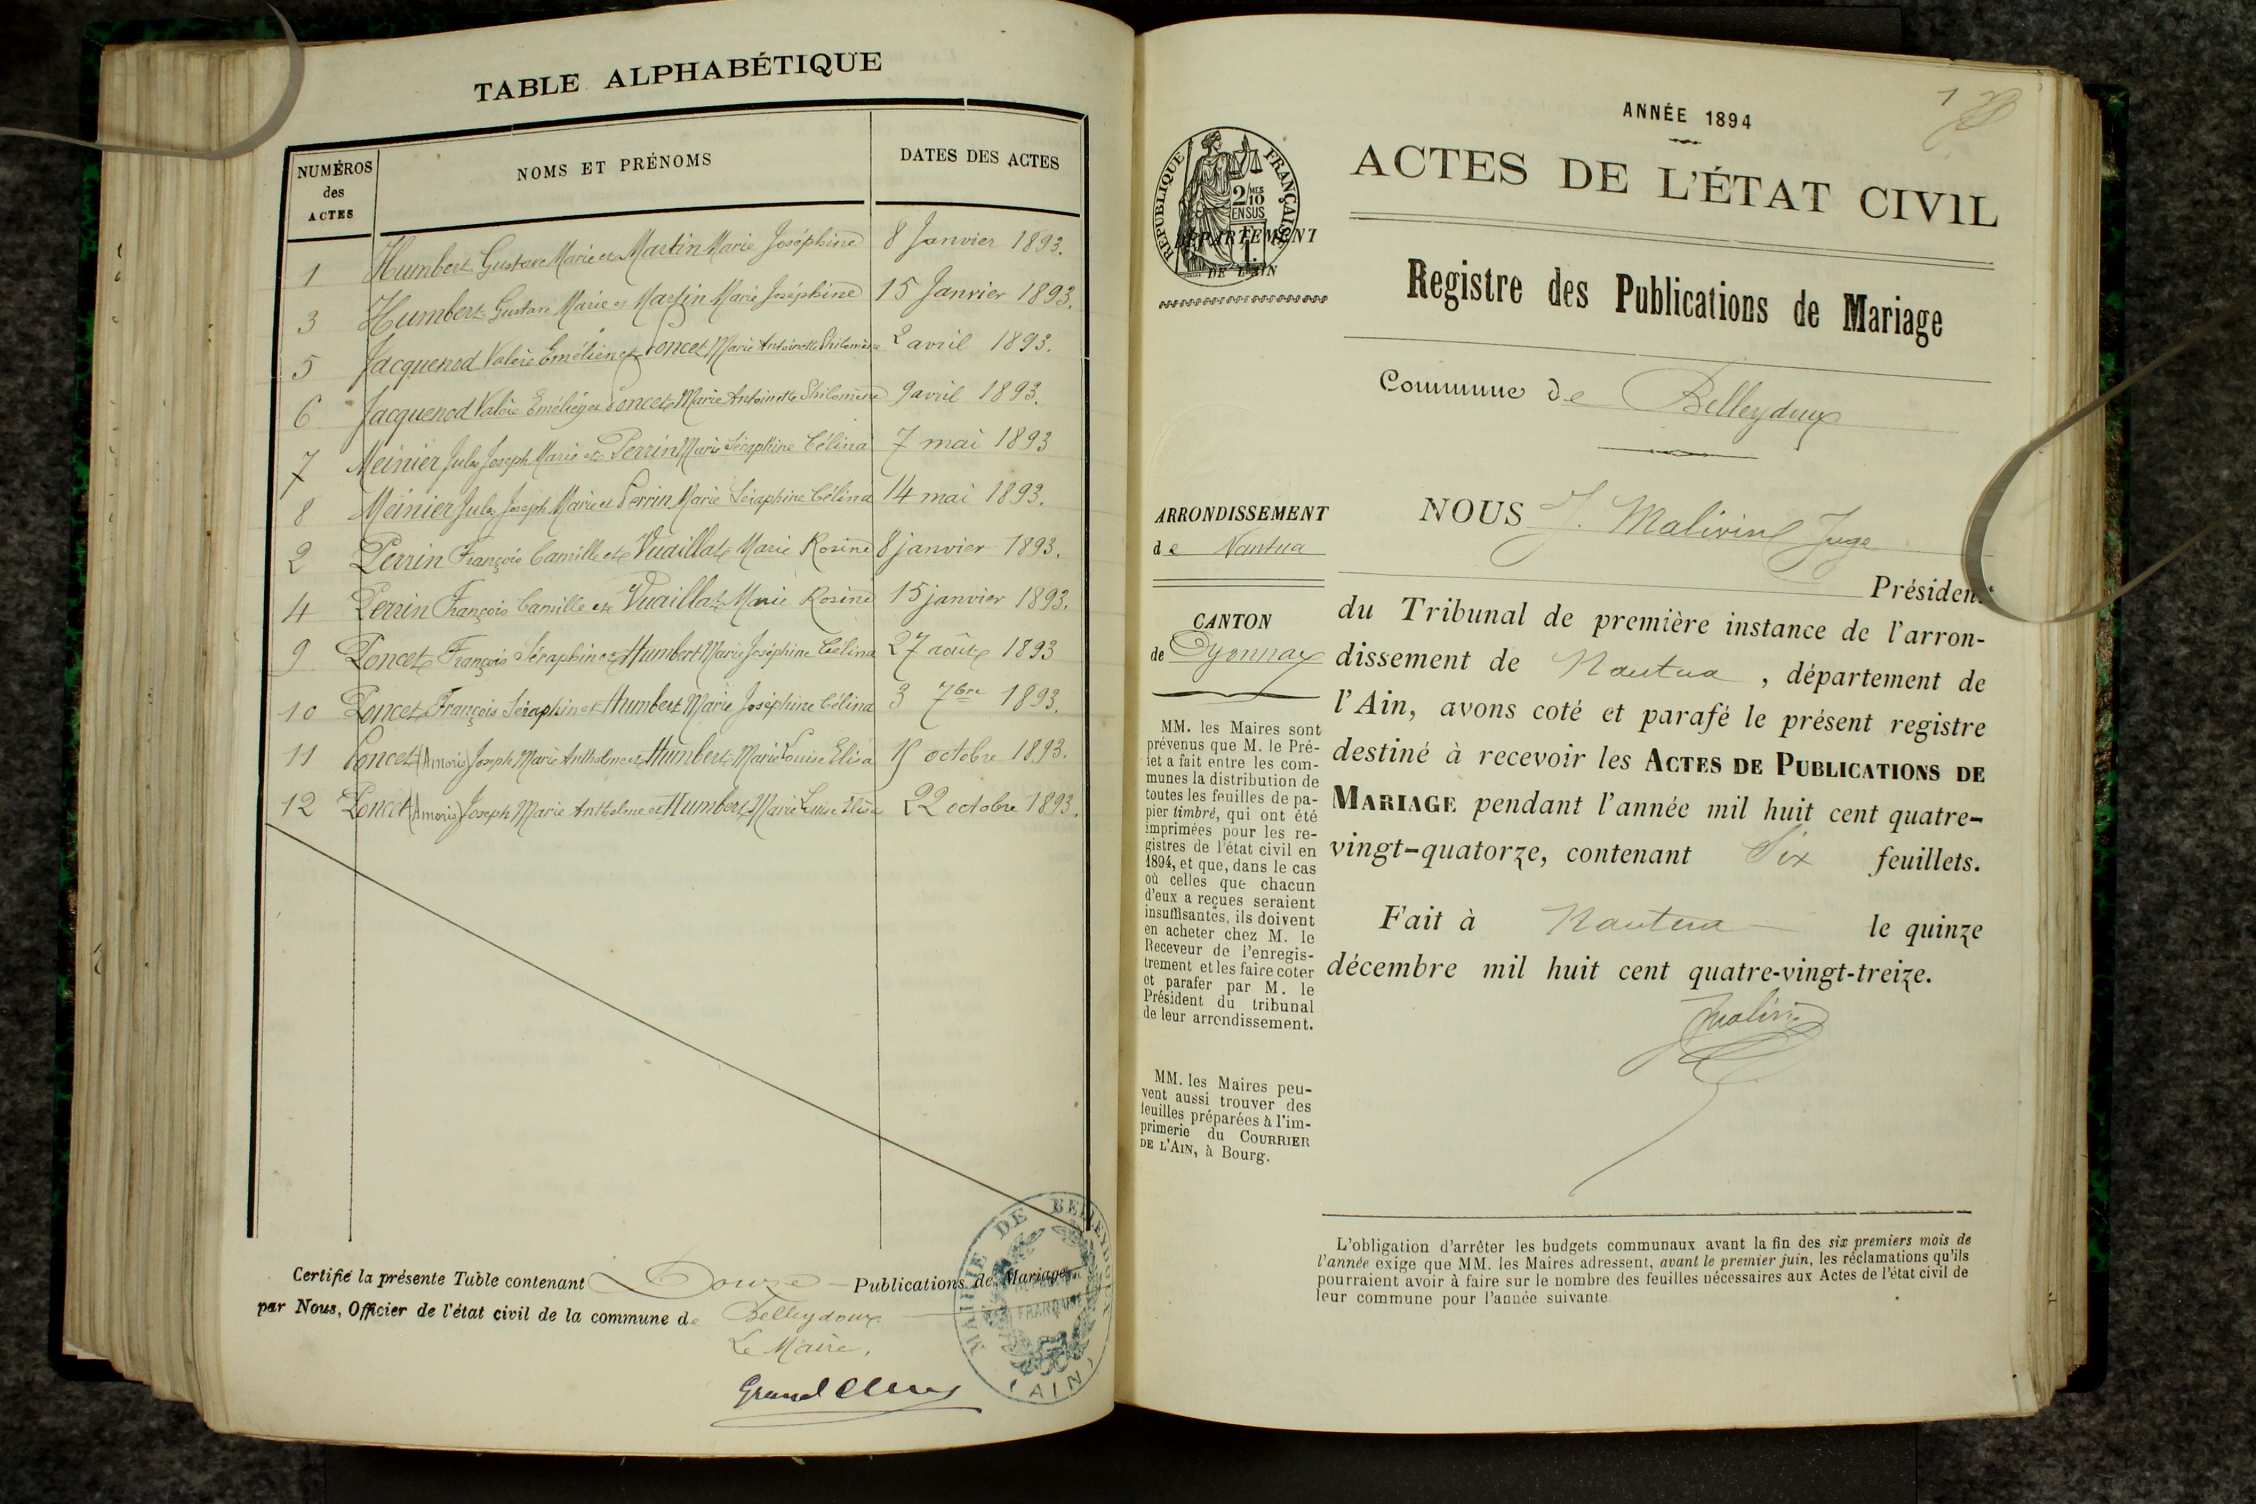 TABLE ALPHABÉTIQUE
NUMÉROS des ACTES
NOMS ET PRÉNOMS
DATES DES ACTES
1 Humbert Gustave Marie et Martin Marie Joséphine 8 Janvier 1893.
3 Humbert Gustave Marie et Martin Marie Joséphine 15 Janvier 1893.
5 Jacquenod Valère Emélien et Poncet Marie Antoinette Philomène 2 avril 1893.
6 Jacquenod Valère Emélien et Poncet Marie Antoinette Philomène 9 avril 1893.
7 Meinier Jules Joseph Marie et Perrin Marie Séraphine Célina 7 mai 1893
8 Meinier Jules Joseph Marie et Perrin Marie Séraphine Célina 14 mai 1893.
2 Perrin François Camille et Vuaillat Marie Rosine 8 janvier 1893.
4 Perrin François Camille et Vuaillat Marie Rosine 15 janvier 1893.
9 Poncet François Séraphin et Humbert Marie Joséphine Célina 27 août 1893
10 Poncet François Séraphin et Humbert Marie Joséphine Célina 3 7bre 1893.
11 Poncet (Amoris) Joseph Marie Anthelme et Humbert Marie Louise Elisa 15 octobre 1893.
12 Poncet (Amoris) Joseph Marie Anthelme et Humbert Marie Louise Elisa 22 octobre 1893.
Certifié la présente Table contenant Douze Publications de Mariage
par Nous, Officier de l'état civil de la commune de Belleydoux
Le Maire,
MAIRIE DE BELLEYDOUX
(AIN)
ANNÉE 1894
ACTES DE L'ÉTAT CIVIL
RÉPUBLIQUE FRANÇAISE
2/10 MES
EN SUS
DÉPARTEMENT
DE L'AIN
Registre des Publications de Mariage
Commune de Belleydoux
ARRONDISSEMENT
de Nantua
CANTON
de Oyonnax
MM. les Maires sont
prévenus que M. le Pré-
fet a fait entre les com-
munes la distribution de
toutes les feuilles de pa-
pier timbré, qui ont été
imprimées pour les re-
gistres de l'état civil en
1894, et que, dans le cas
où celles que chacun
d'eux a reçues seraient
insuffisantes, ils doivent
en acheter chez M. le
Receveur de l'enregis-
trement et les faire coter
et parafer par M. le
Président du tribunal
de leur arrondissement.
MM. les Maires peu-
vent aussi trouver des
feuilles préparées à l'im-
primerie du COURRIER
DE L'AIN, à Bourg.
NOUS J. Malivin Juge
Président
du Tribunal de première instance de l'arron-
dissement de Nantua, département de
l'Ain, avons coté et parafé le présent registre
destiné à recevoir les ACTES DE PUBLICATIONS DE
MARIAGE pendant l'année mil huit cent quatre-
vingt-quatorze, contenant Six feuillets.
Fait à Nantua le quinze
décembre mil huit cent quatre-vingt-treize.
L'obligation d'arrêter les budgets communaux avant la fin des six premiers mois de
l'année exige que MM. les Maires adressent, avant le premier juin, les réclamations qu'ils
pourraient avoir à faire sur le nombre des feuilles nécessaires aux Actes de l'état civil de
leur commune pour l'année suivante.